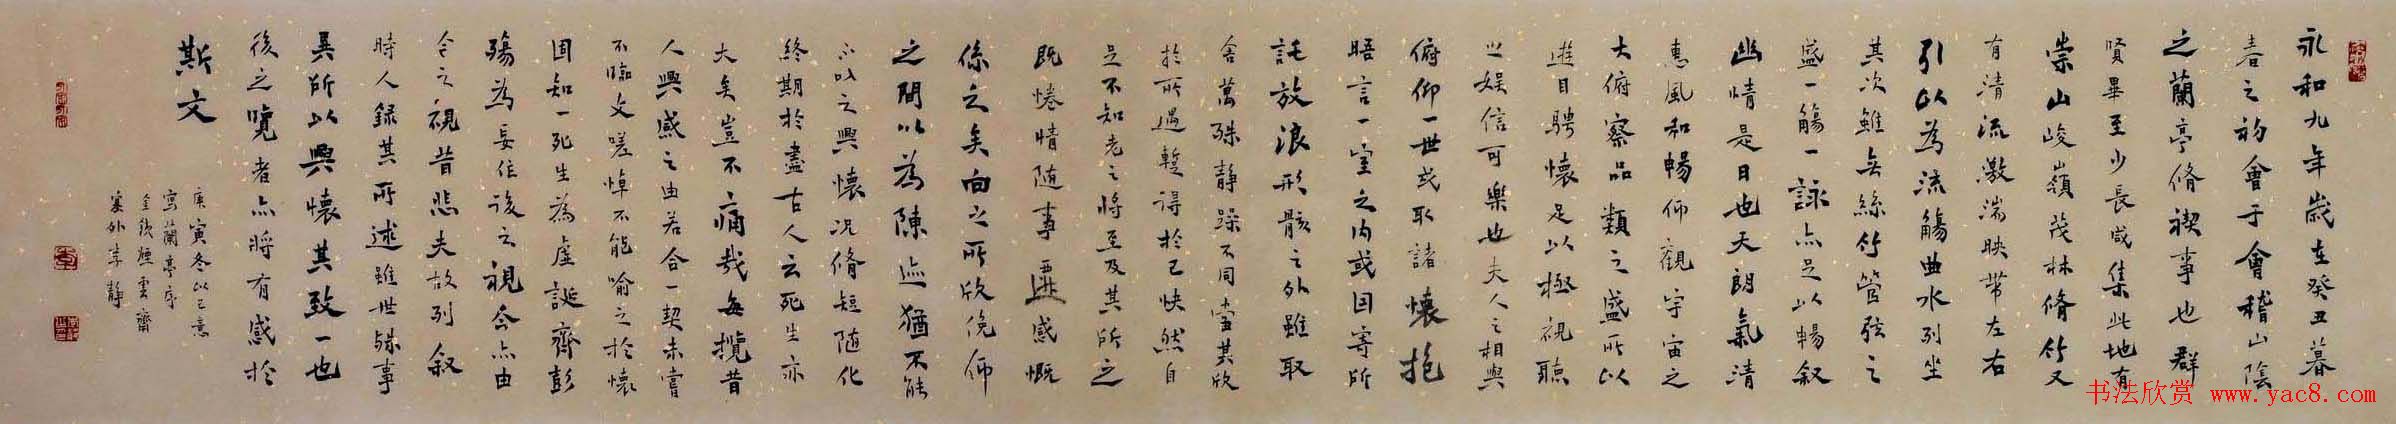 永和九年歲在癸丑暮
春之初會于會稽山陰
之蘭亭脩禊事也群
賢畢至少長咸集此地有
崇山峻嶺茂林脩竹又
有清流激湍映帶左右
引以為流觴曲水列坐
其次雖無絲竹管弦之
盛一觴一詠亦足以暢敘
幽情是日也天朗氣清
惠風和暢仰觀宇宙之
大俯察品類之盛所以
遊目騁懷足以極視聽
之娛信可樂也夫人之相與
俯仰一世或取諸懷抱
晤言一室之內或因寄所
託放浪形骸之外雖取
舍萬殊靜躁不同當其欣
於所遇暫得於己快然自
足不知老之將至及其所之
既惓情隨事遷感慨
係之矣向之所欣俛仰
之間以為陳迹猶不能
不以之興懷況脩短隨化
終期於盡古人云死生亦
大矣豈不痛哉每攬昔
人興感之由若合一契未嘗
不臨文嗟悼不能喻之於懷
固知一死生為虛誕齊彭
殤為妄作後之視今亦由
今之視昔悲夫故列敘
時人錄其所述雖世殊事
異所以興懷其致一也
後之覽者亦將有感於
斯文
庚寅冬以己意
寫蘭亭序
於煙雲齋
塞外李靜
书法欣赏 www.yac8.com